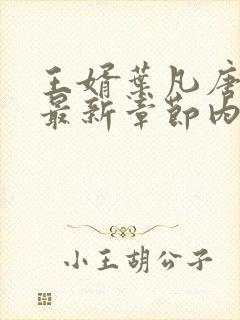 王婿叶凡唐
最新章节内
小王胡公子